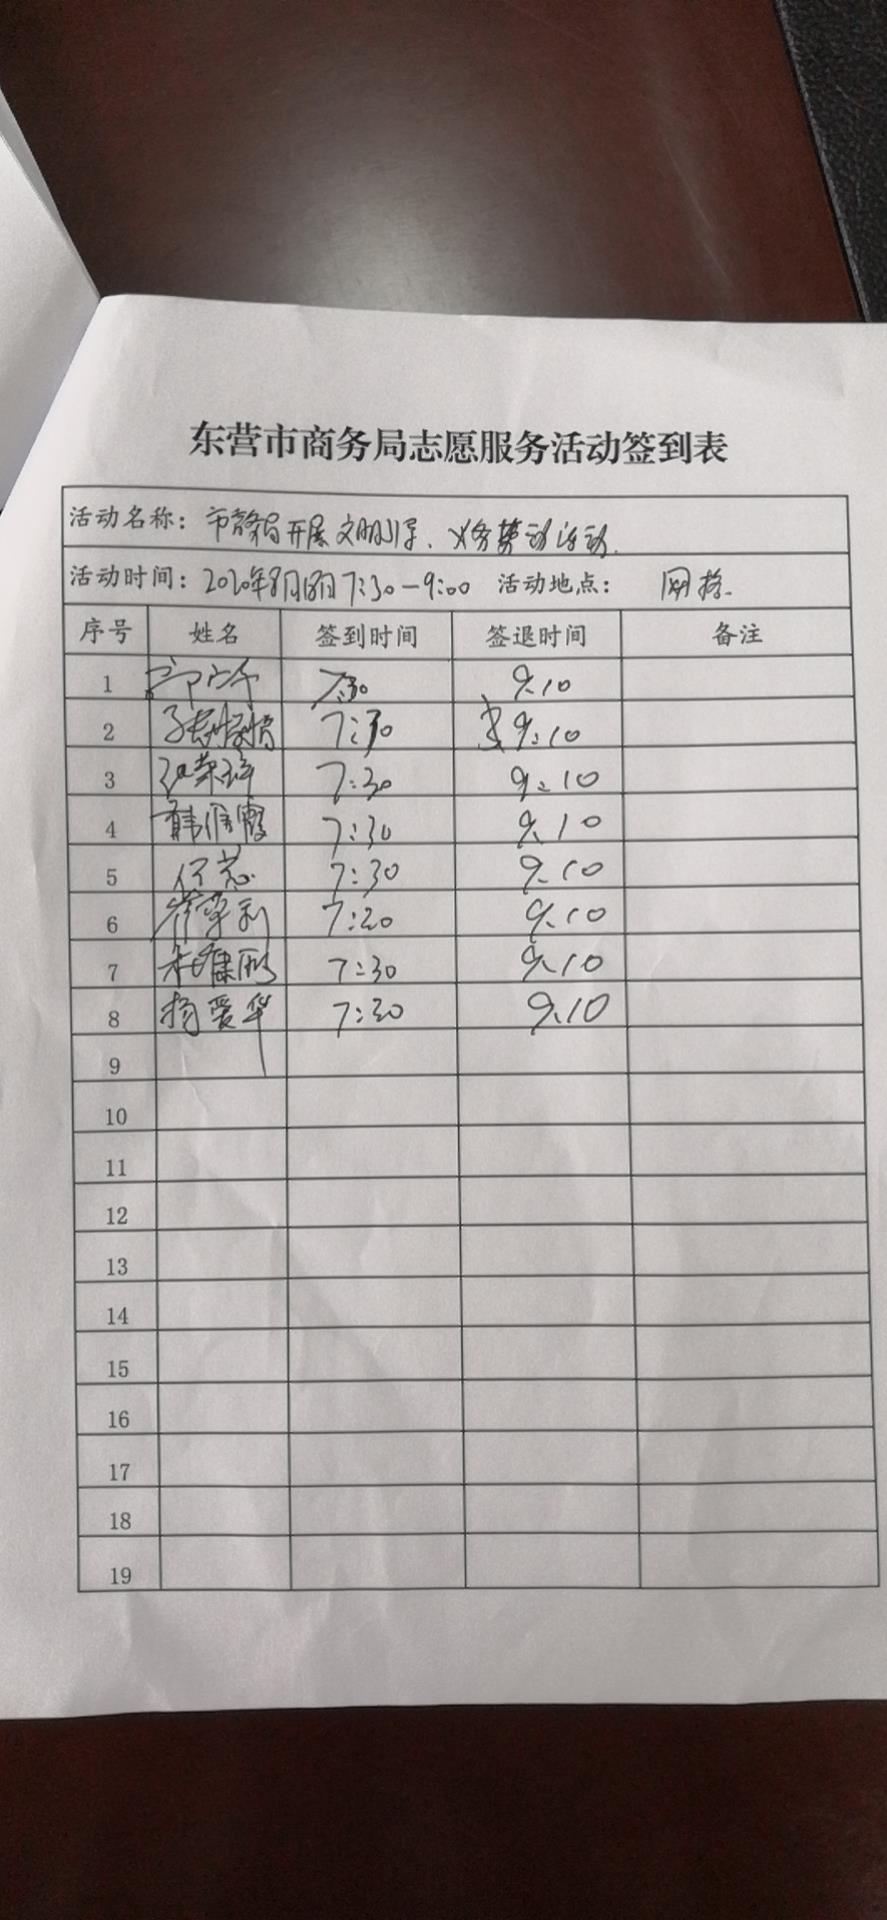 东营市商务局志愿服务活动签到表
活动名称：市商务局开展文明引导、义务劳动活动.
活动时间：2020年8月18日7:30-9:00 活动地点： 网格.
序号 姓名 签到时间 签退时间 备注
1 7:30 9.10
2 7:30 9:10
3 7:30 9:10
4 韩维霞 7:30 9.10
5 7:30 9.10
6 7:20 9.10
7 7:30 9.10
8 杨爱华 7:30 9.10
9
10
11
12
13
14
15
16
17
18
19